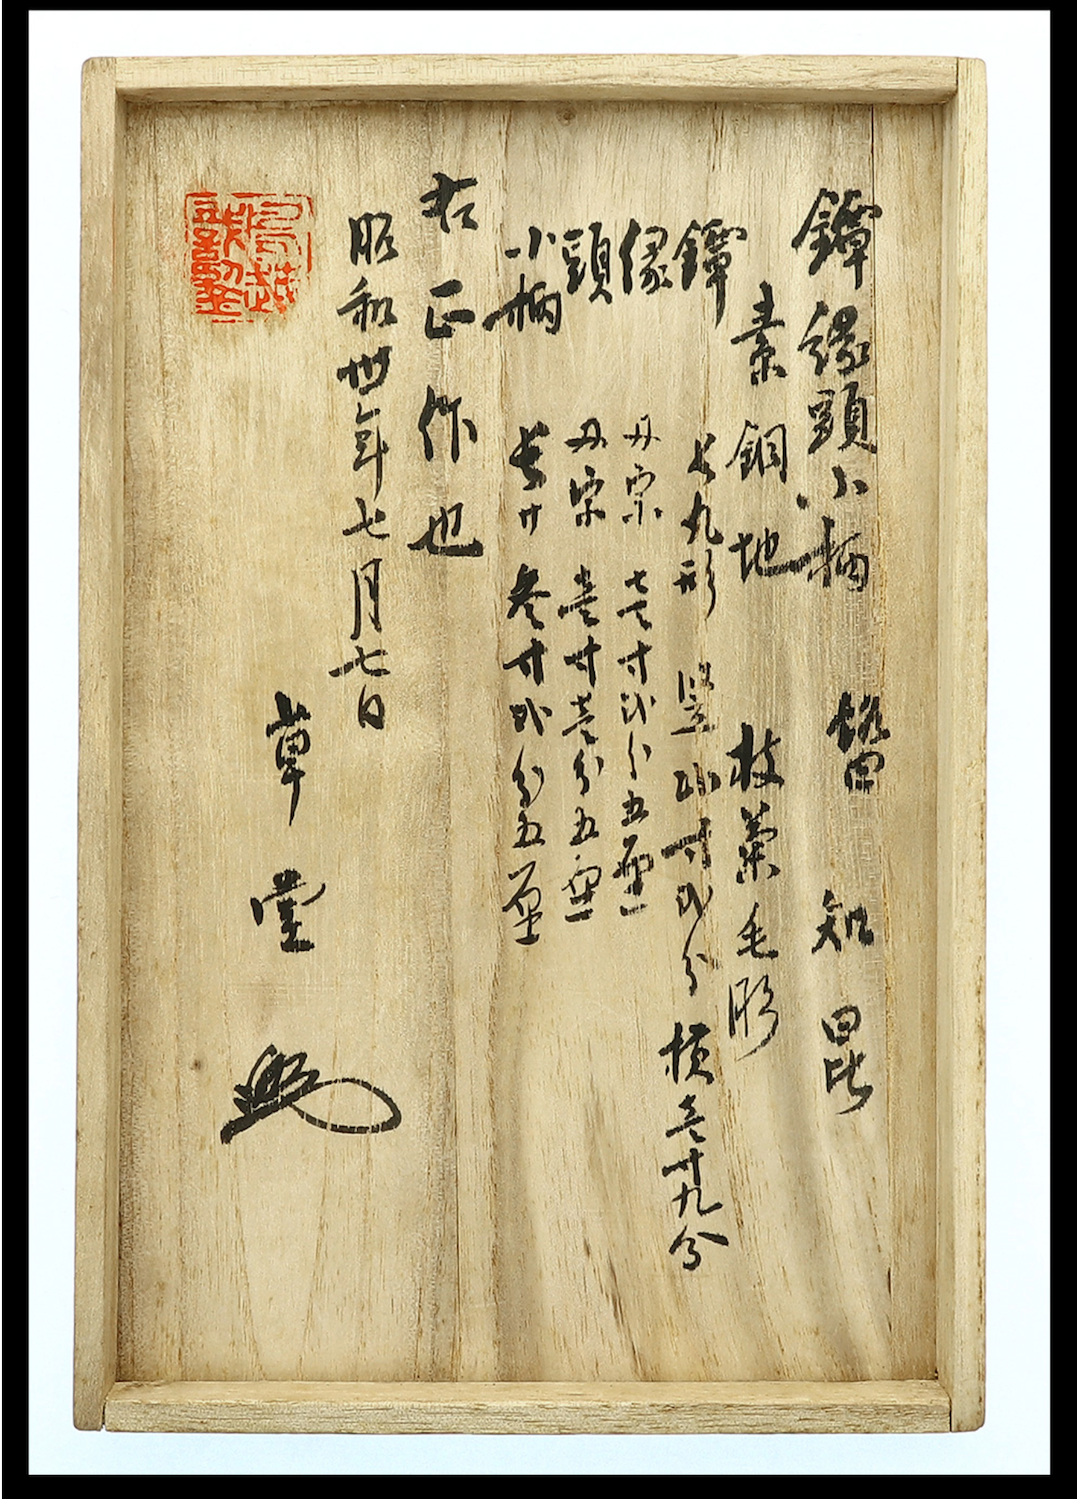 鐔縁頭小柄 知昆
素銅地 枝菊毛彫
鐔 長丸形 竪弐寸弐分 横壱寸九分
縁 壱寸弐分五厘
頭 壱寸壱分五厘
小柄 長サ 参寸弐分五厘
右正作也
昭和卌年七月七日
草堂